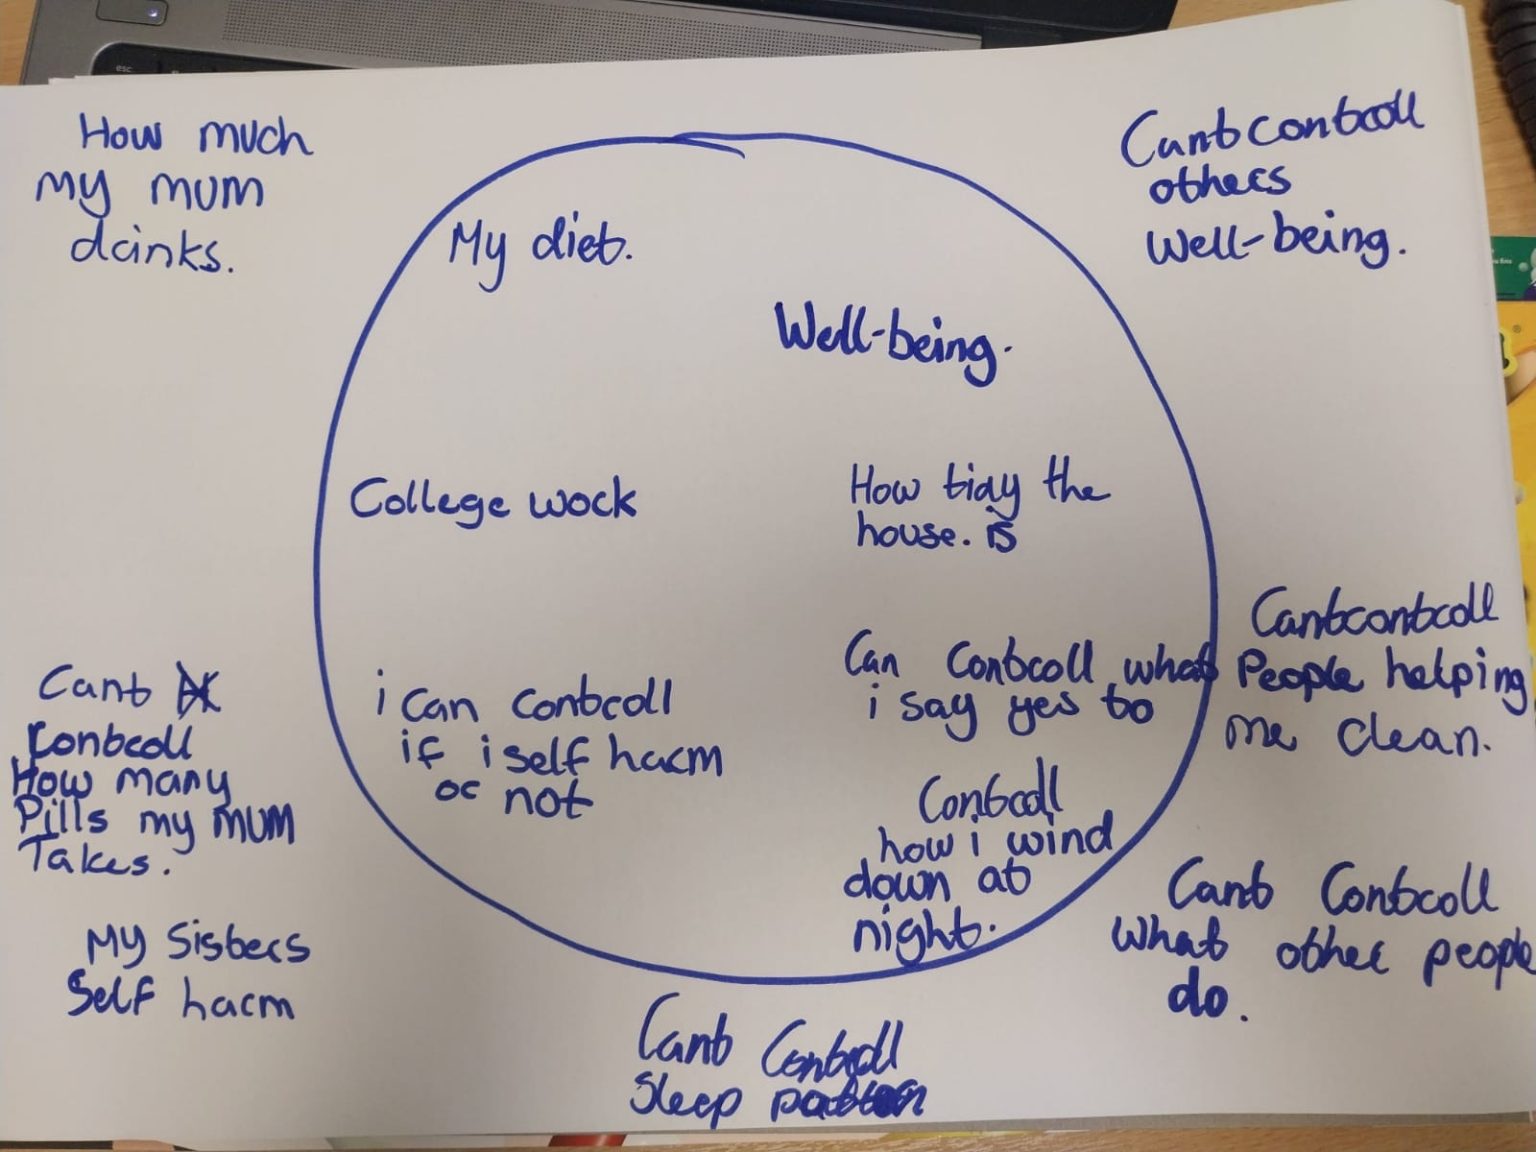 esc
How much
my mum
drinks.
Cant controll
others
Well-being.
My diet.
Well-being.
College work
How tidy the
house. is
i can controll
if i self harm
or not
Can Controll what
i say yes to
Cant controll
People helping
me clean.
Cant
Controll
How many
Pills my mum
Takes.
Controll
how i wind
down at
night.
My Sisters
Self harm
Cant Controll
what other people
do.
Cant Controll
Sleep pattern